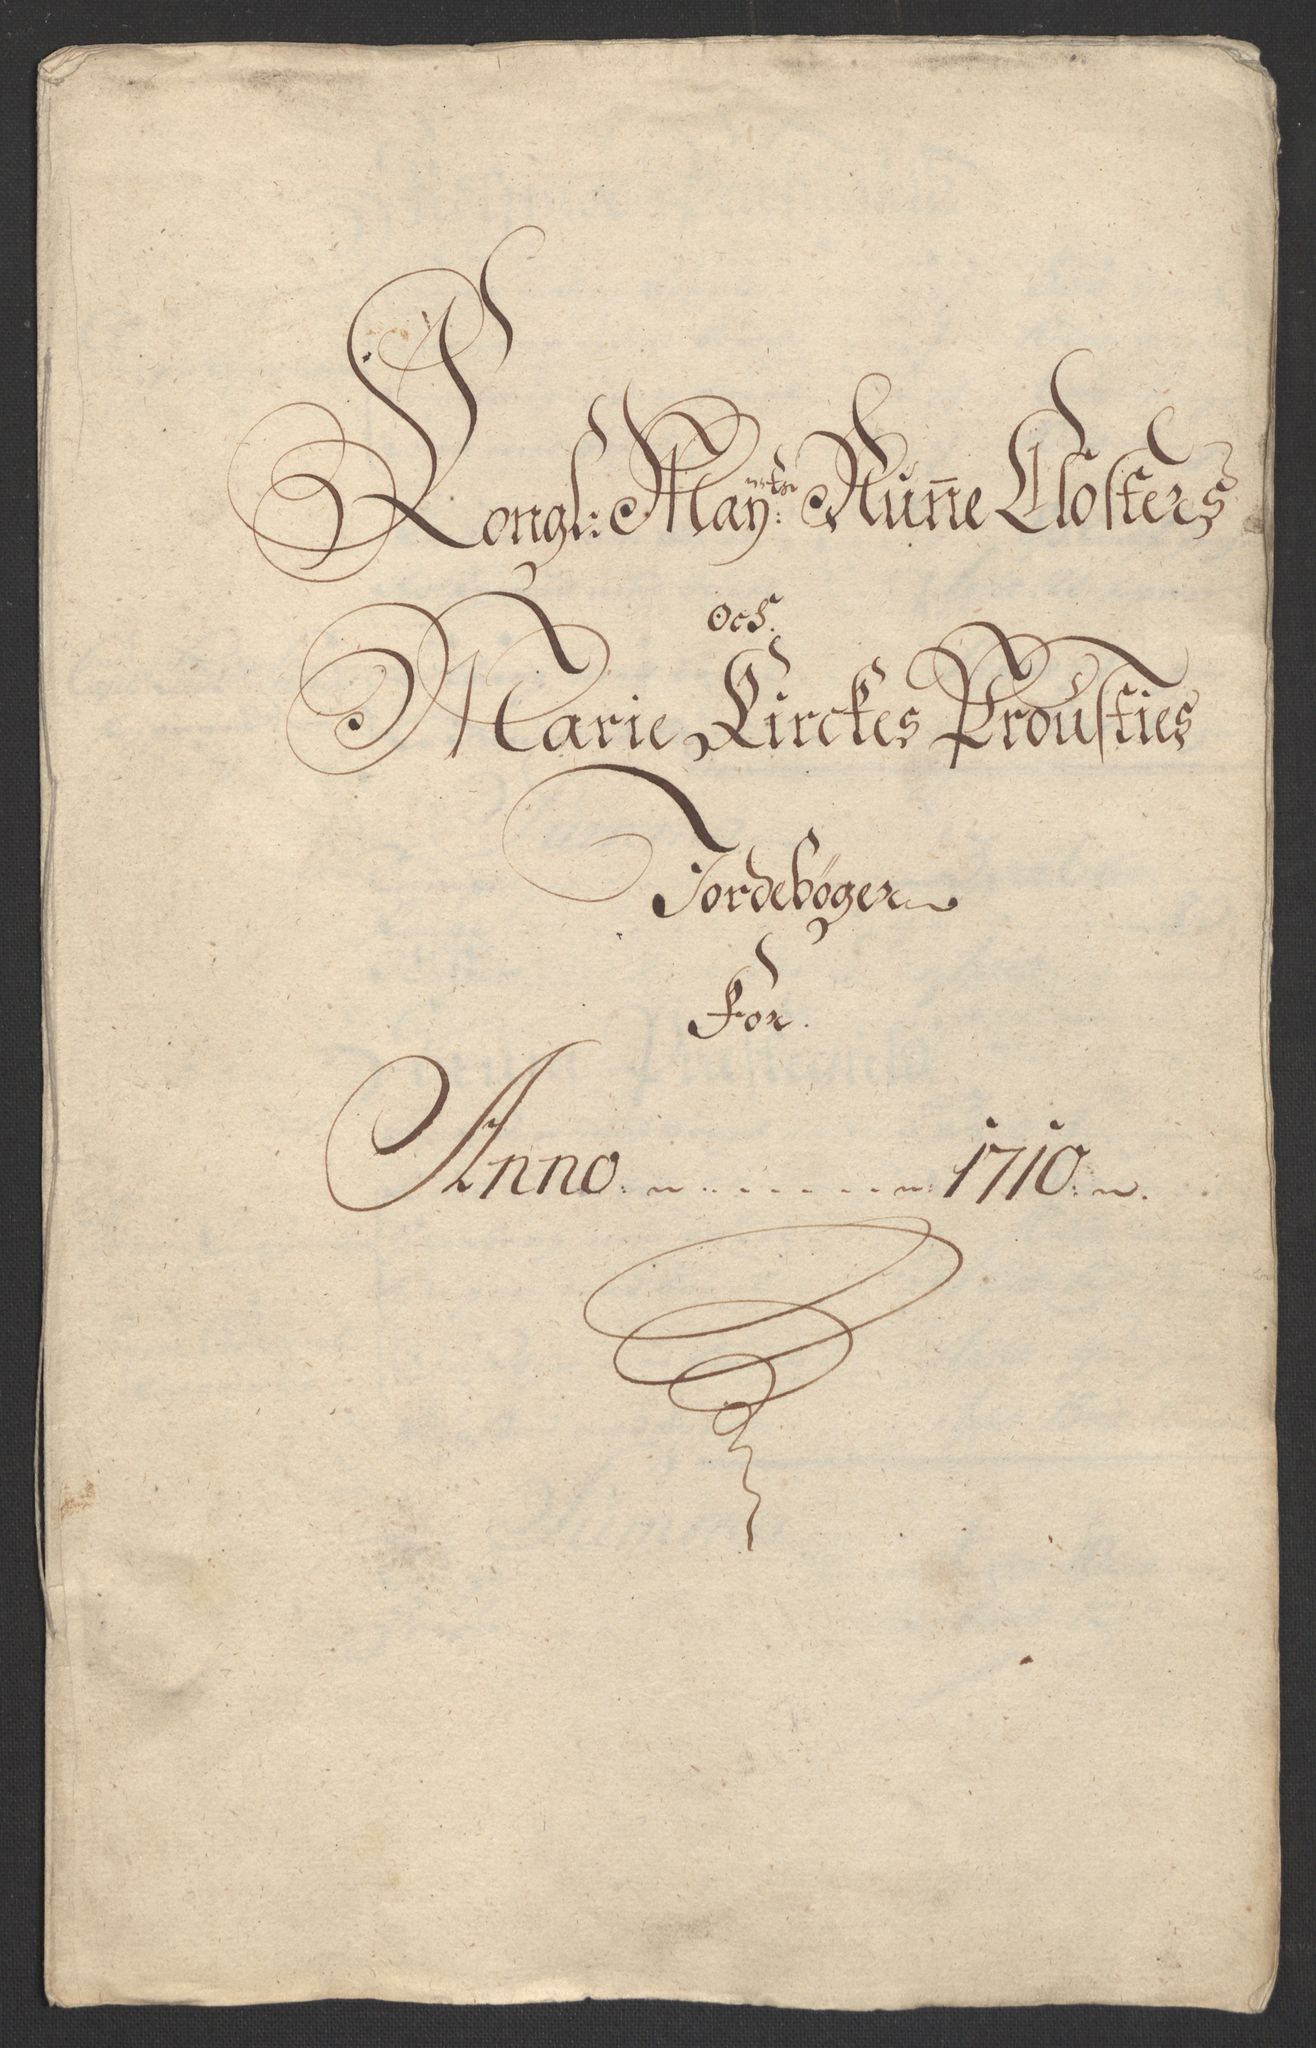 Kongl: May:ᵗᵗˢ Nun̅e Closters
Och.
Marie Kirckes Prousties
Jordebøger
For.
Anno. 1710.